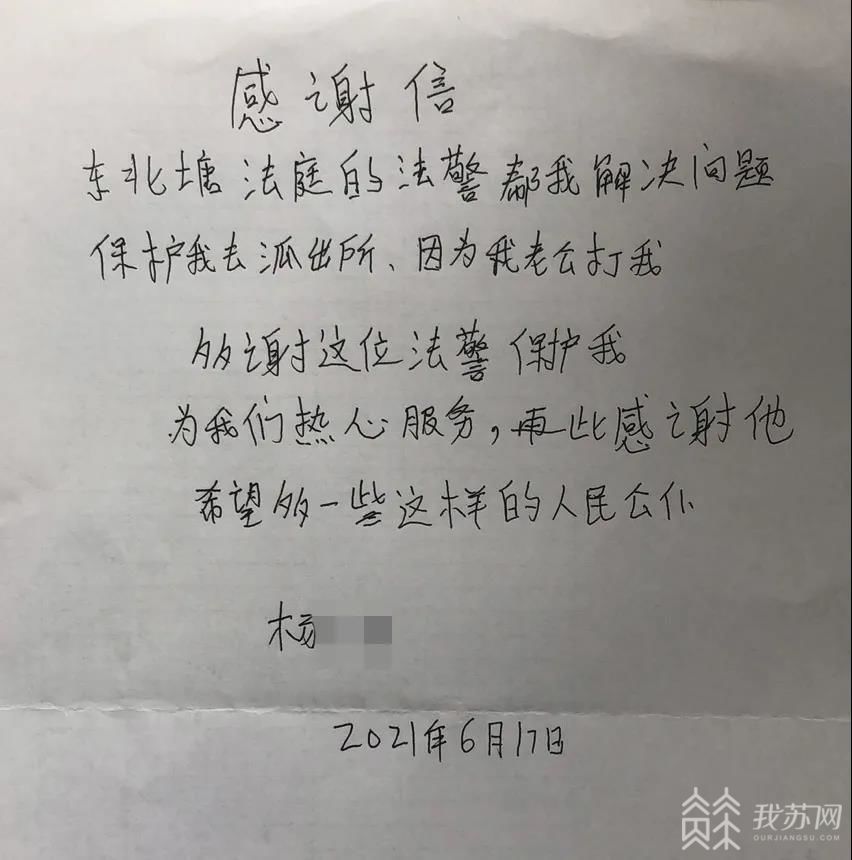 感谢信
东北塘法庭的法警帮我解决问题
保护我去派出所、因为我老公打我
多谢这位法警保护我
为我们热心服务，再此感谢他
希望多一些这样的人民公仆
杨
2021年6月17日
我苏网
OURJIANGSU.COM